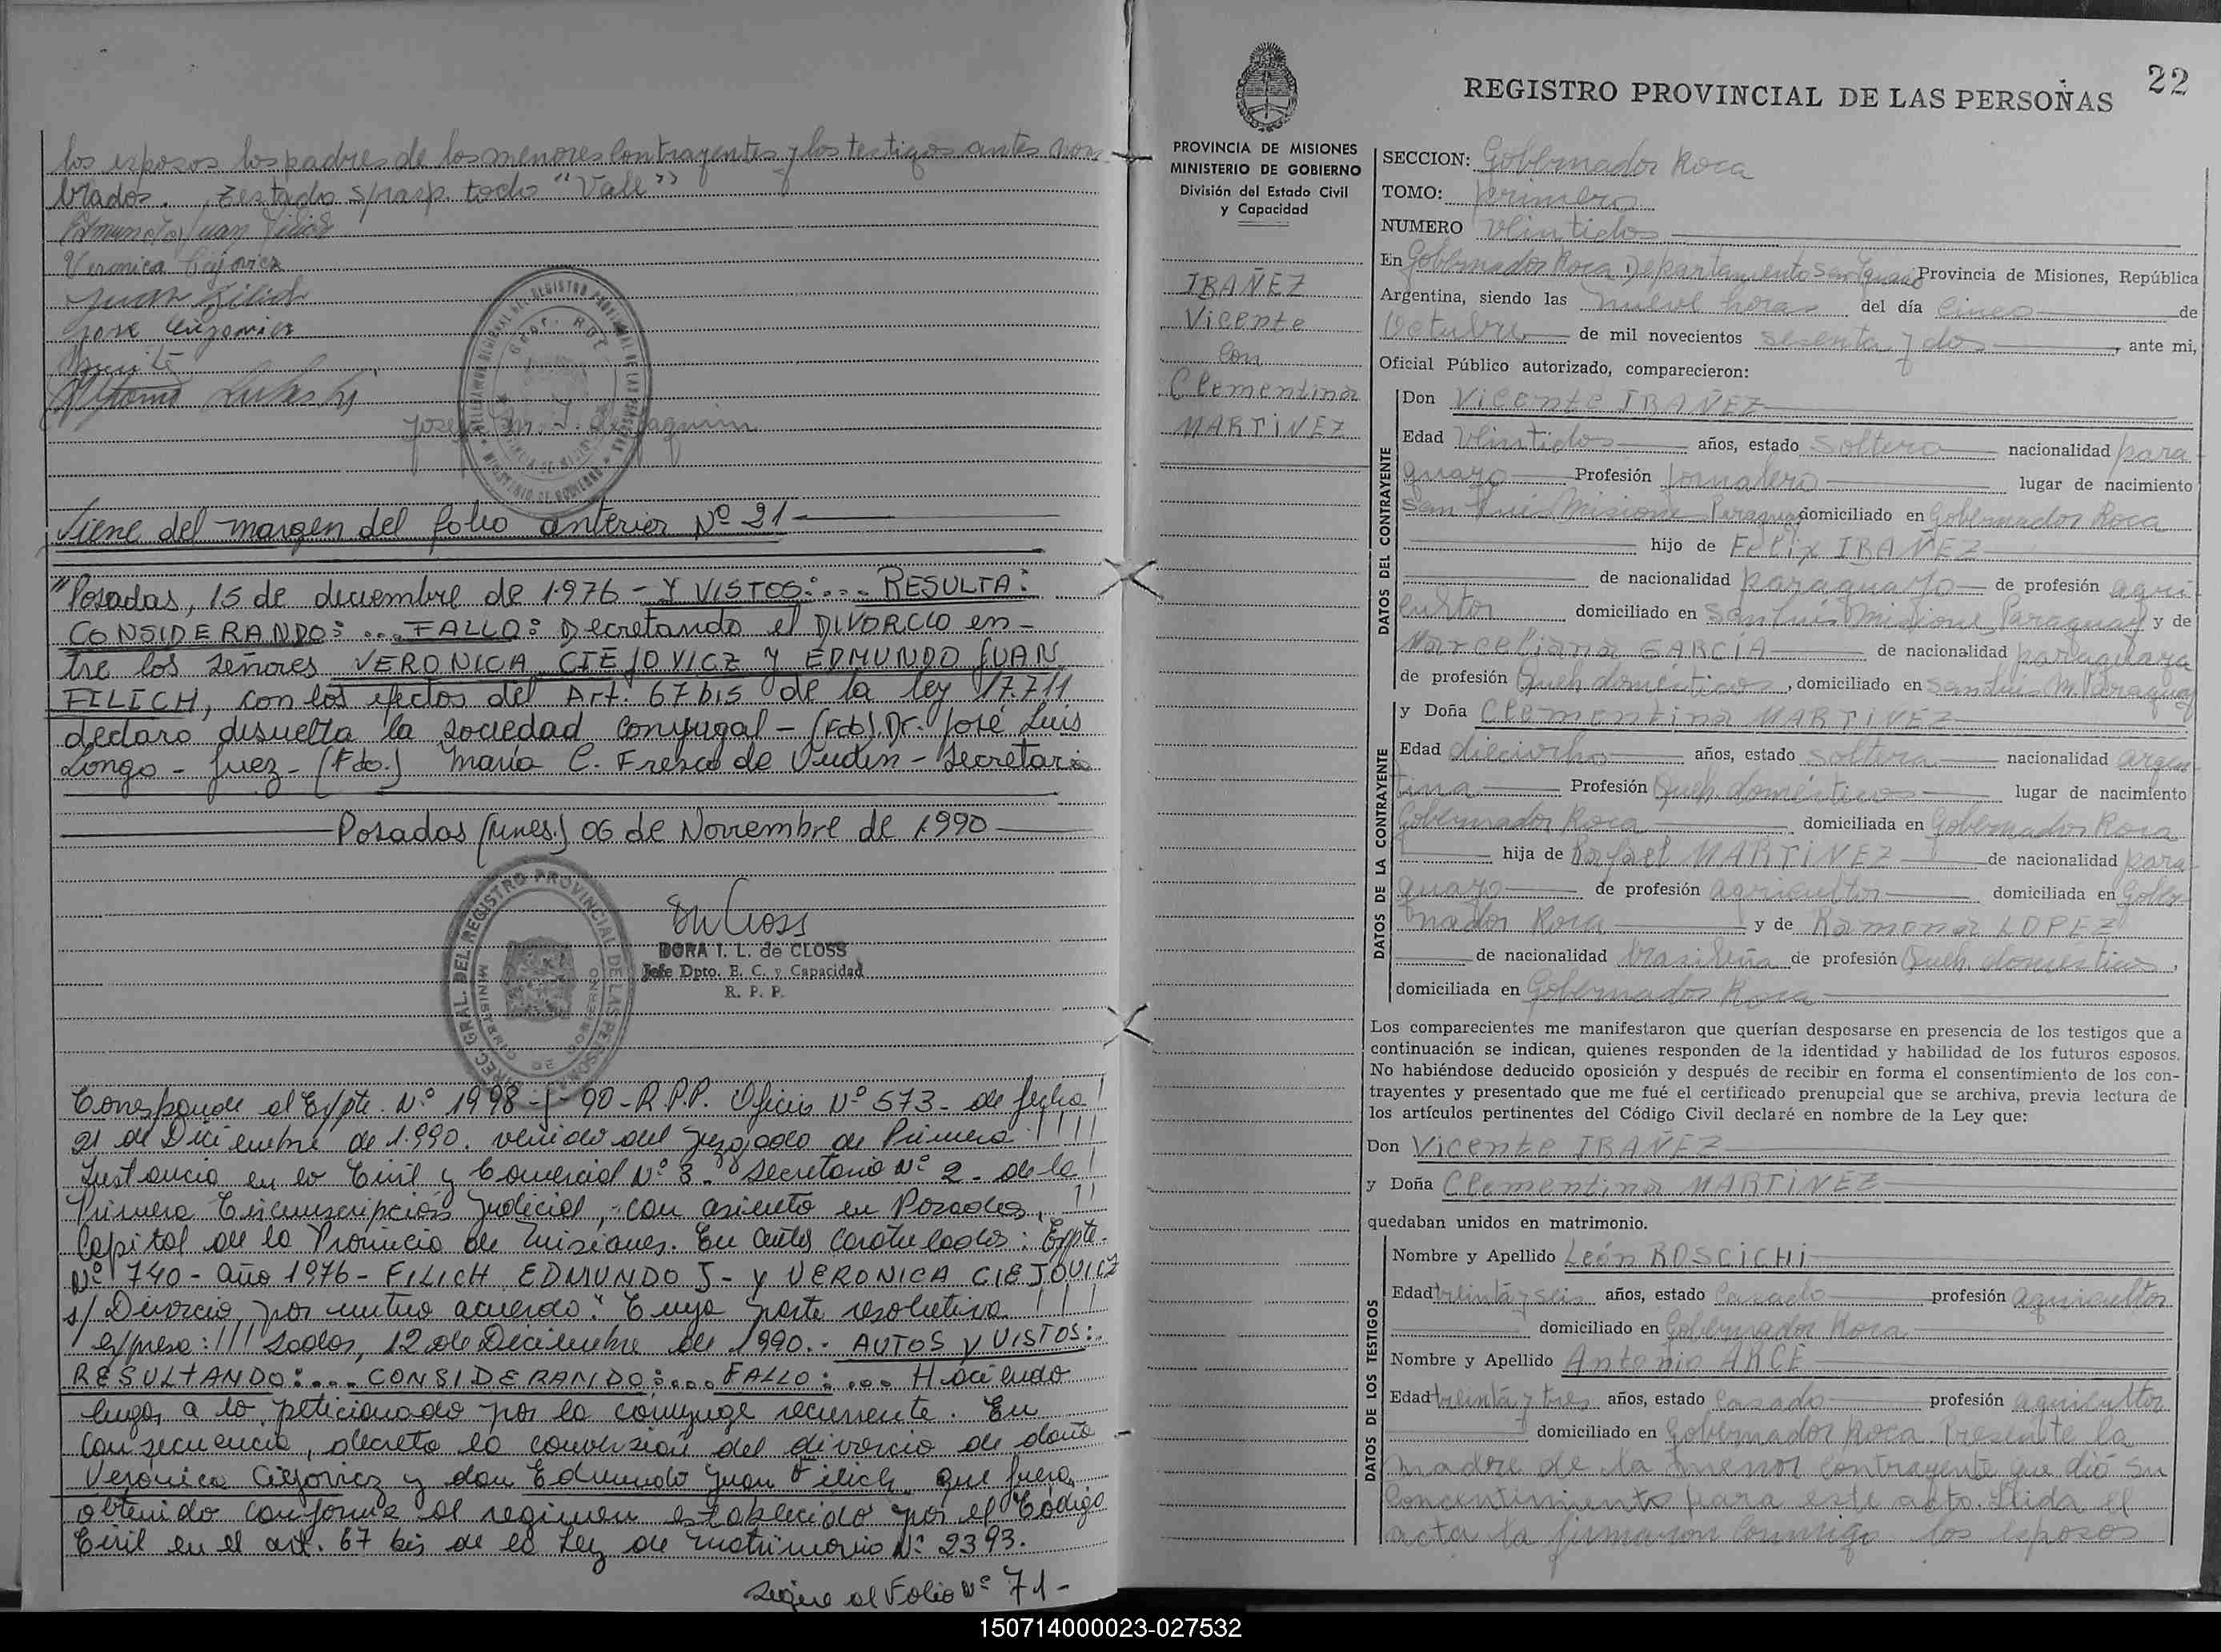 los esposos los padres de los menores contrayentes y los testigos antes nom
brados. Testado s/rasp. todo "Vale"
Edmundo Juan Filich
Veronica Ciejovicz
Juan Filich
Jose
José
Viene del margen del folio anterior Nº 21
"Posadas, 15 de diciembre de 1976 - Y VISTOS:.... RESULTA:
CONSIDERANDO: ... FALLO: Decretando el DIVORCIO en-
tre los señores VERONICA CIEJOVICZ Y EDMUNDO JUAN
FILICH, con los efectos del Art. 67 bis de la ley 17.711
declaro disuelta la sociedad conyugal - (Fdo). Dr. José Luis
Longo - Juez - (Fdo.) María C. Fresco de - Secretaria
Posadas (Mnes.) 06 de Noviembre de 1990
DORA I. L. de CLOSS
Jefe Dpto. E. C. y Capacidad
R. P. P.
Corresponde al Expte. Nº 1998-J-90-R.P.P. Oficio Nº 573- de fecha
21 de Diciembre de 1.990. venido del Juzgado de Primera
Instancia en lo Civil y Comercial Nº 3- Secretaria Nº 2- de la
Primera Circunscripción Judicial, con asiento en Posadas,
Capital de la Provincia de Misiones. En autos caratulados: Expte.
Nº 740 - Año 1976 - FILICH EDMUNDO J- y VERONICA CIEJOVICZ
s/ Divorcio por mutuo acuerdo". Cuya parte resolutiva
expresa: !!! sadas, 12 de Diciembre de 1990.- AUTOS Y VISTOS:
RESULTANDO:... CONSIDERANDO:.... FALLO: .... Haciendo
lugar a lo peticionado por la conyuge recurrente. En
consecuencia, decreto la conversión del divorcio de doña
Verónica Ciejovicz y don Edmundo Juan Filich, que fuera
obtenido conforme al regimen establecido por el Código
Civil en el art. 67 bis de la Ley de Matrimonio Nº 2393.
Sigue al Folio Nº 71-
22
REGISTRO PROVINCIAL DE LAS PERSONAS
PROVINCIA DE MISIONES
MINISTERIO DE GOBIERNO
División del Estado Civil
y Capacidad
IBAÑEZ
Vicente
con
Clementina
MARTINEZ
SECCION: Gobernador Roca
TOMO: primero
NUMERO veintidos
En Gobernador Roca Departamento San Ignacio Provincia de Misiones, República
Argentina, siendo las nueve horas del día cinco de
Octubre de mil novecientos sesenta y dos, ante mi,
Oficial Público autorizado, comparecieron:
DATOS DEL CONTRAYENTE
Don Vicente IBAÑEZ
Edad veintidos años, estado soltero nacionalidad para
guayo Profesión Jornalero lugar de nacimiento
San Luis Misiones Paraguay domiciliado en Gobernador Roca
hijo de Felix IBAÑEZ
de nacionalidad paraguayo de profesión agri
cultor domiciliado en San Luis Misiones Paraguay y de
Marceliana GARCIA de nacionalidad paraguaya
de profesión Queh. domésticos, domiciliado en San Luis M. Paraguay
DATOS DE LA CONTRAYENTE
y Doña Clementina MARTINEZ
Edad dieciocho años, estado soltera nacionalidad argen
tina Profesión Queh. domésticos lugar de nacimiento
Gobernador Roca domiciliada en Gobernador Roca
hija de Rafael MARTINEZ de nacionalidad para
guayo de profesión agricultor domiciliada en Gober
nador Roca y de Ramona LOPEZ
de nacionalidad brasileña de profesión Queh. domesticos,
domiciliada en Gobernador Roca
Los comparecientes me manifestaron que querían desposarse en presencia de los testigos que a
continuación se indican, quienes responden de la identidad y habilidad de los futuros esposos.
No habiéndose deducido oposición y después de recibir en forma el consentimiento de los con-
trayentes y presentado que me fué el certificado prenupcial que se archiva, previa lectura de
los artículos pertinentes del Código Civil declaré en nombre de la Ley que:
Don Vicente IBAÑEZ
y Doña Clementina MARTINEZ
quedaban unidos en matrimonio.
DATOS DE LOS TESTIGOS
Nombre y Apellido León ROSCICHI
Edad treinta y seis años, estado casado profesión agricultor
domiciliado en Gobernador Roca
Nombre y Apellido Antonio ARCE
Edad treinta y tres años, estado casado profesión agricultor
domiciliado en Gobernador Roca. Presente la
madre de la menor contrayente que dió su
concentimiento para este acto. Leida el
acta la firmaron conmigo los esposos
150714000023-027532